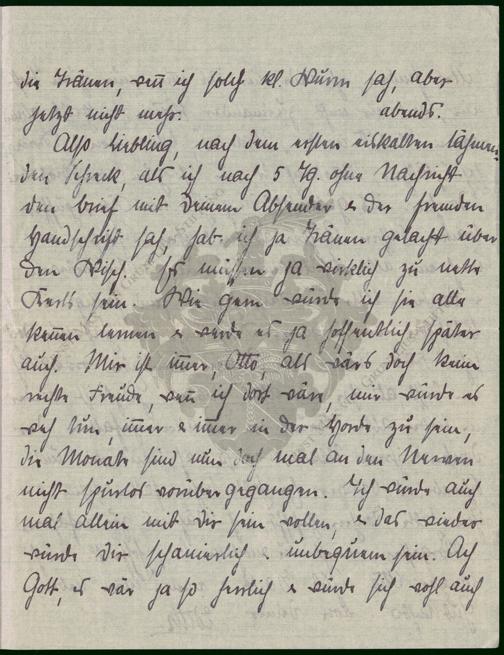 die Tränen, wenn ich solch kl. Wurm sah, aber
jetzt nicht mehr. abends.
Also Liebling, nach dem ersten eiskalten lähmen-
den Schreck, als ich nach 5 Tg. ohne Nachricht
den Brief mit Deinem Absender & der fremden
Handschrift sah, hab ich ja Tränen gelacht über
den Wisch. Es müssen ja wirklich zu nette
Kerls sein. Wie gern würde ich sie alle
kennen lernen & werde es ja hoffentlich später
auch. Mir ist immer, Otto, als wärs doch keine
rechte Freude, wenn ich dort wäre, mir würde es
weh tun, immer & immer in der Horde zu sein,
die Monate sind nun doch mal an den Nerven
nicht spurlos vorübergegangen. Ich würde auch
mal allein mit Dir sein wollen, & das wieder
würde Dir schanierlich & unbequem sein. Ach
Gott, es wär ja so herrlich & würde sich wohl auch